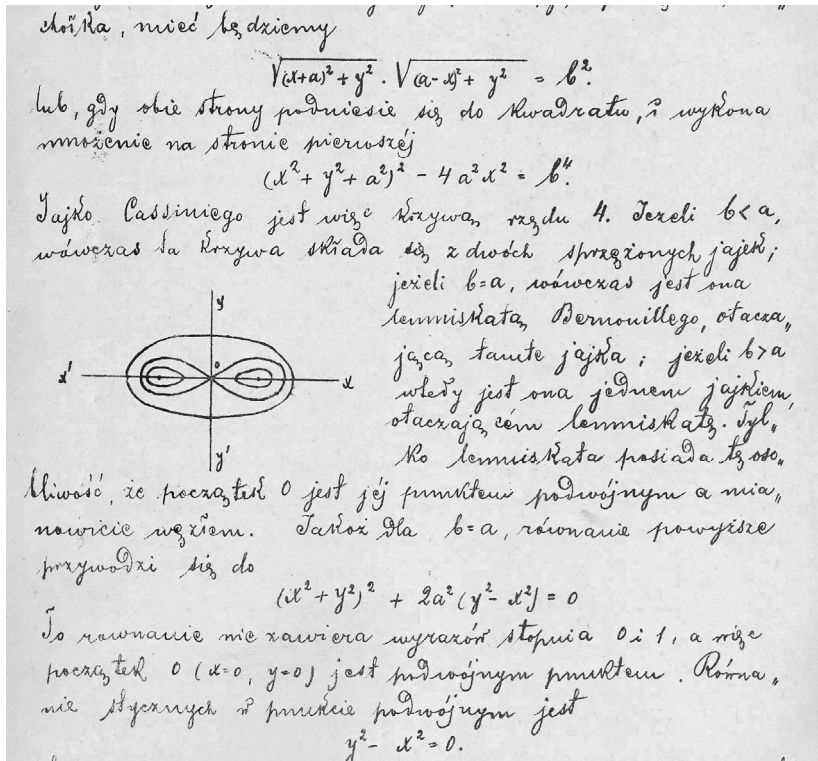 chołka, mieć będziemy
√(x+a)² + y² . √(a-x)² + y² = b².
lub, gdy obie strony podniesie się do kwadratu, i wykona
mnożenie na stronie pierwszéj
(x² + y² + a²)² - 4a²x² = b⁴.
Jajko Cassiniego jest więc krzywą rzędu 4. Jeżeli b < a,
wówczas ta krzywa składa się z dwóch sprzężonych jajek;
jeżeli b=a, wówczas jest ona
lemniskatą Bernouillego, otacza„
jącą tamte jajka; jeżeli b>a
wtedy jest ona jednem jajkiem,
otaczającém lemniskatę. Tyl„
ko lemniskata posiada tę oso„
bliwość, że początek 0 jest jéj punktem podwójnym a mia„
nowicie węzłem. Jakoż dla b=a, równanie powyższe
przywodzi się do
(x² + y²)² + 2a²(y² - x²) = 0
To rownanie nie zawiera wyrazów stopnia 0 i 1, a więc
początek 0 (x=0, y=0) jest podwójnym punktem. Równa„
nie stycznych w punkcie podwójnym jest
y² - x² = 0.
y
x' o x
y'